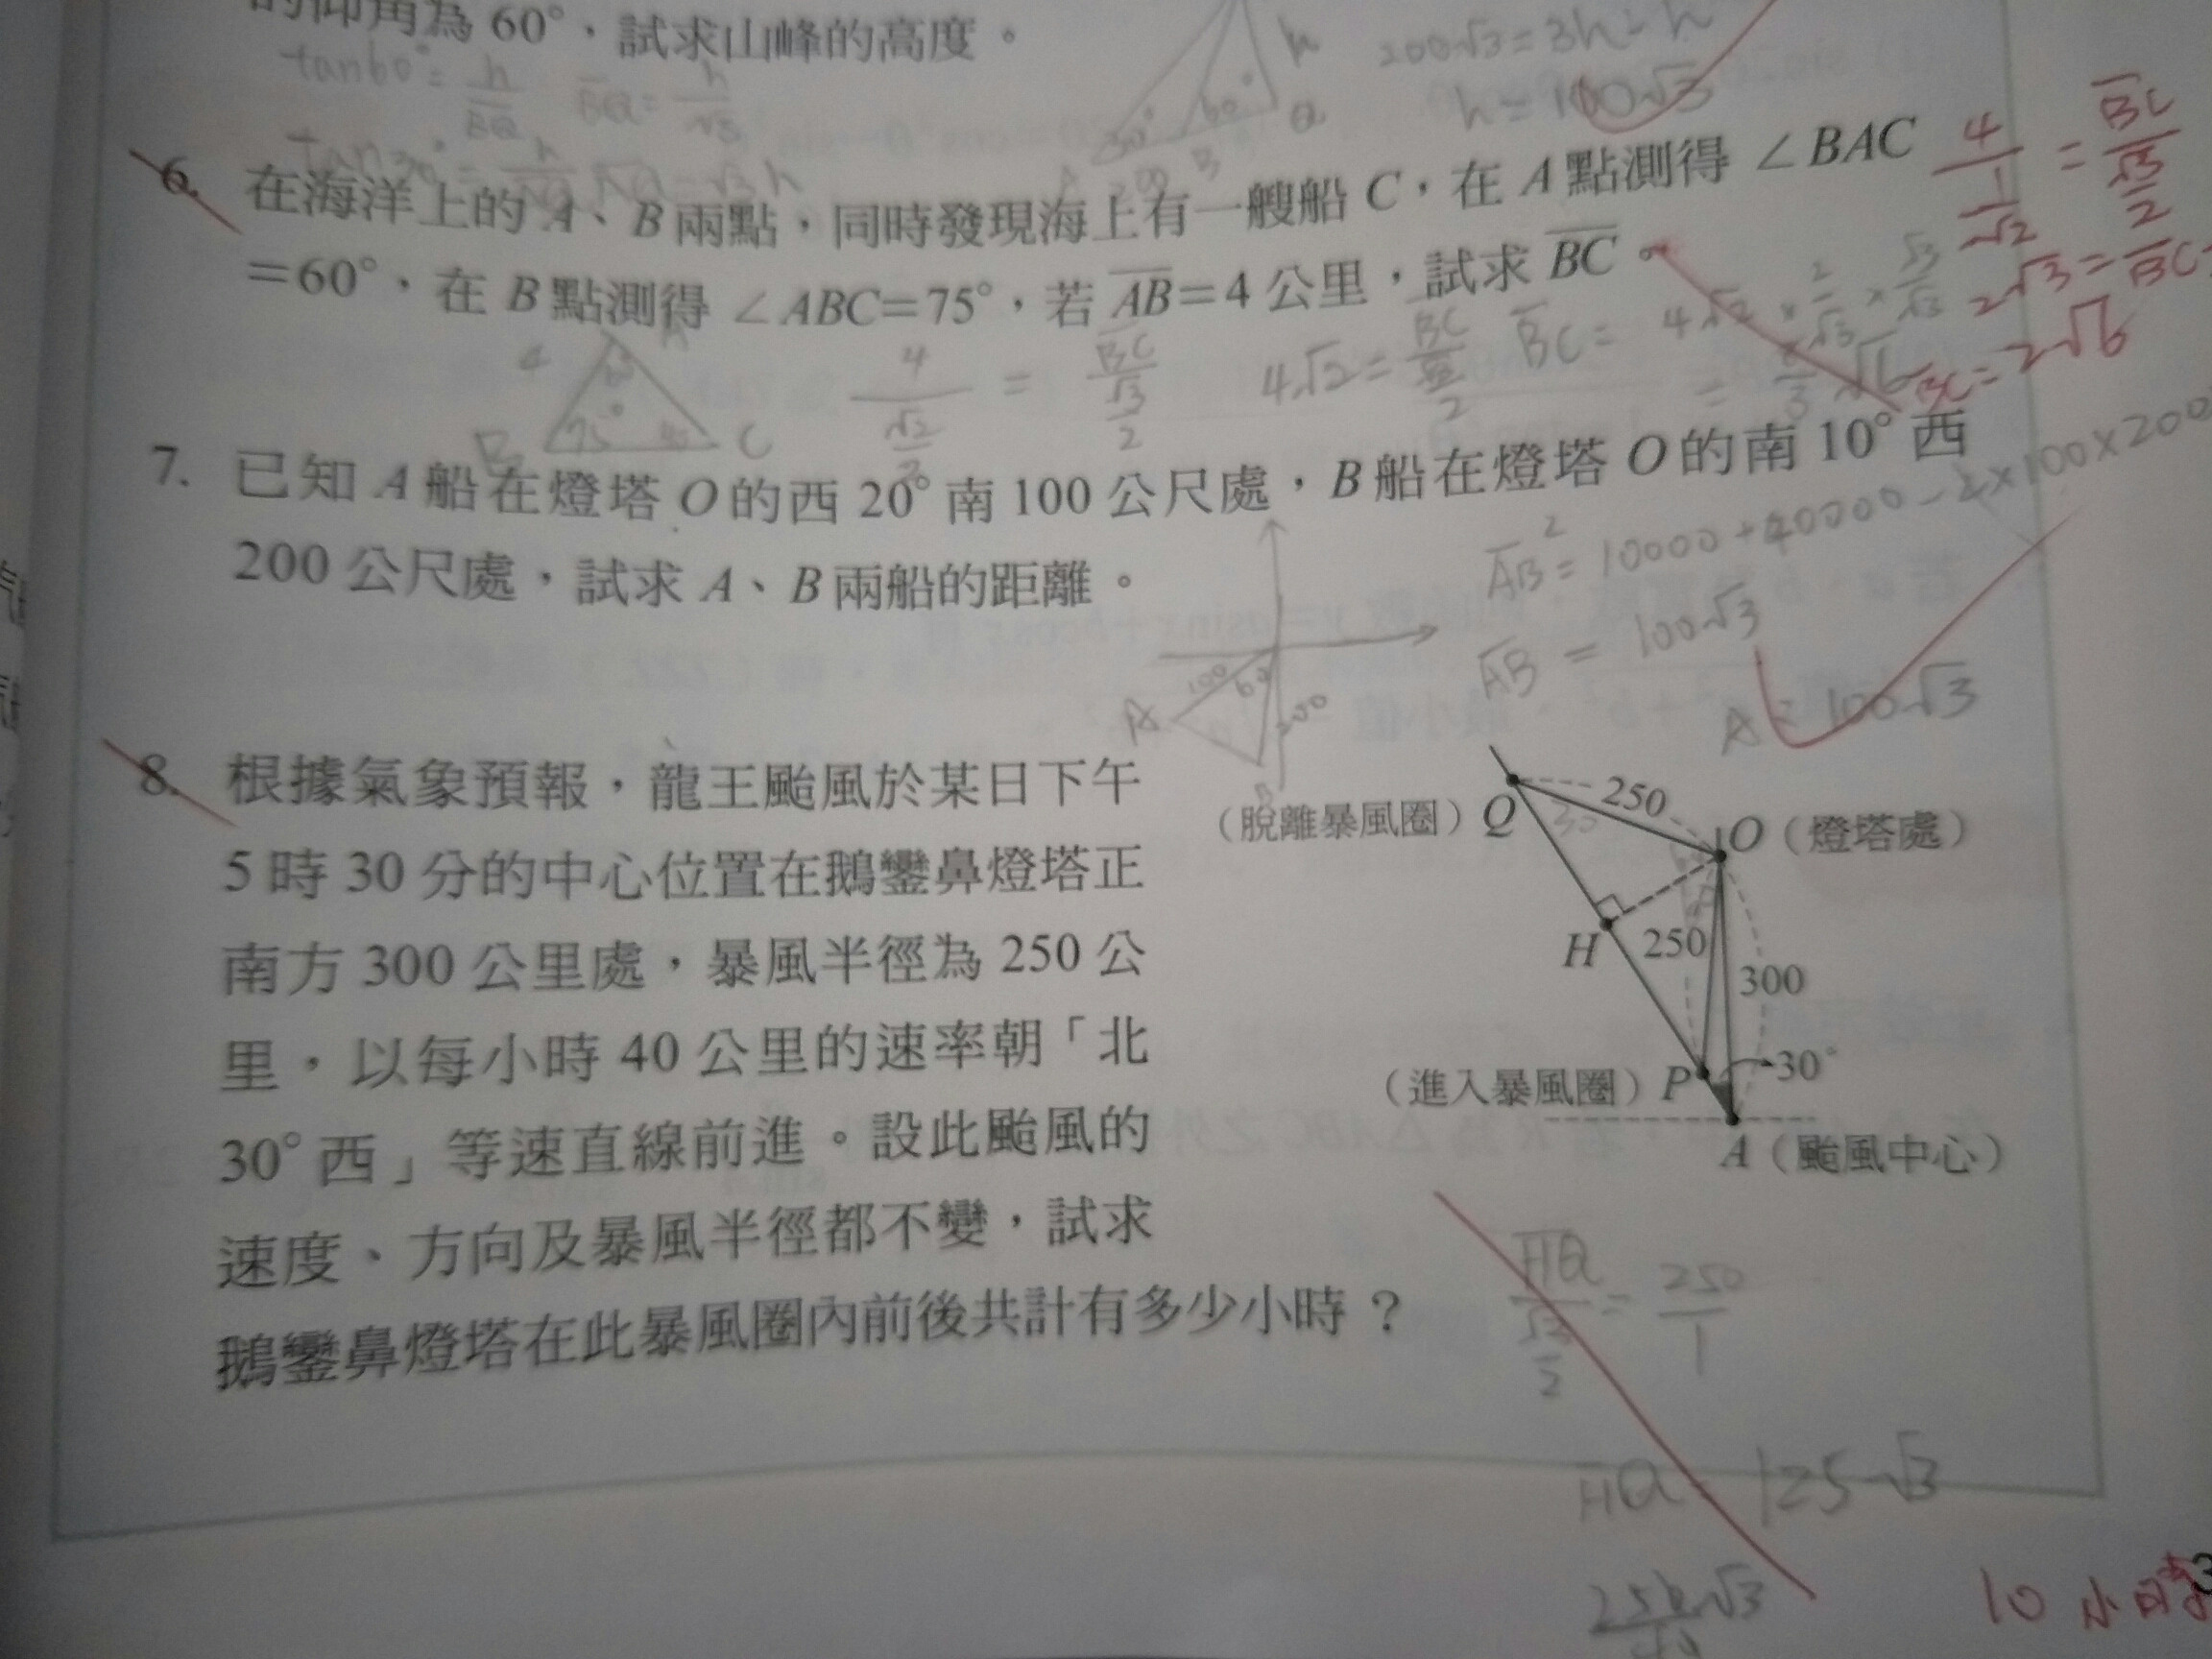 的仰角為 60°，試求山峰的高度。
tan60° = h/BQ BQ = h/√3
200√3 = 3h - h
h = 100√3
6. 在海洋上的 A、B 兩點，同時發現海上有一艘船 C，在 A 點測得 ∠BAC
=60°，在 B 點測得 ∠ABC=75°，若 AB=4 公里，試求 BC。
4/(1/√2) = BC/(√3/2)
BC = 2√6
4 A B 75° C
4/(√2/2) = BC/(√3/2)
7. 已知 A 船在燈塔 O 的西 20° 南 100 公尺處，B 船在燈塔 O 的南 10° 西
200 公尺處，試求 A、B 兩船的距離。
AB² = 10000 + 40000 - 2×100×200
AB = 100√3
A: 100√3
100 60 200 A B
8. 根據氣象預報，龍王颱風於某日下午
5 時 30 分的中心位置在鵝鑾鼻燈塔正
南方 300 公里處，暴風半徑為 250 公
里，以每小時 40 公里的速率朝「北
30° 西」等速直線前進。設此颱風的
速度、方向及暴風半徑都不變，試求
鵝鑾鼻燈塔在此暴風圈內前後共計有多少小時？
（脫離暴風圈）Q
250
O（燈塔處）
H
250
300
（進入暴風圈）P
30°
A（颱風中心）
HQ/(√3/2) = 250/1
HQ = 125√3
10 小時